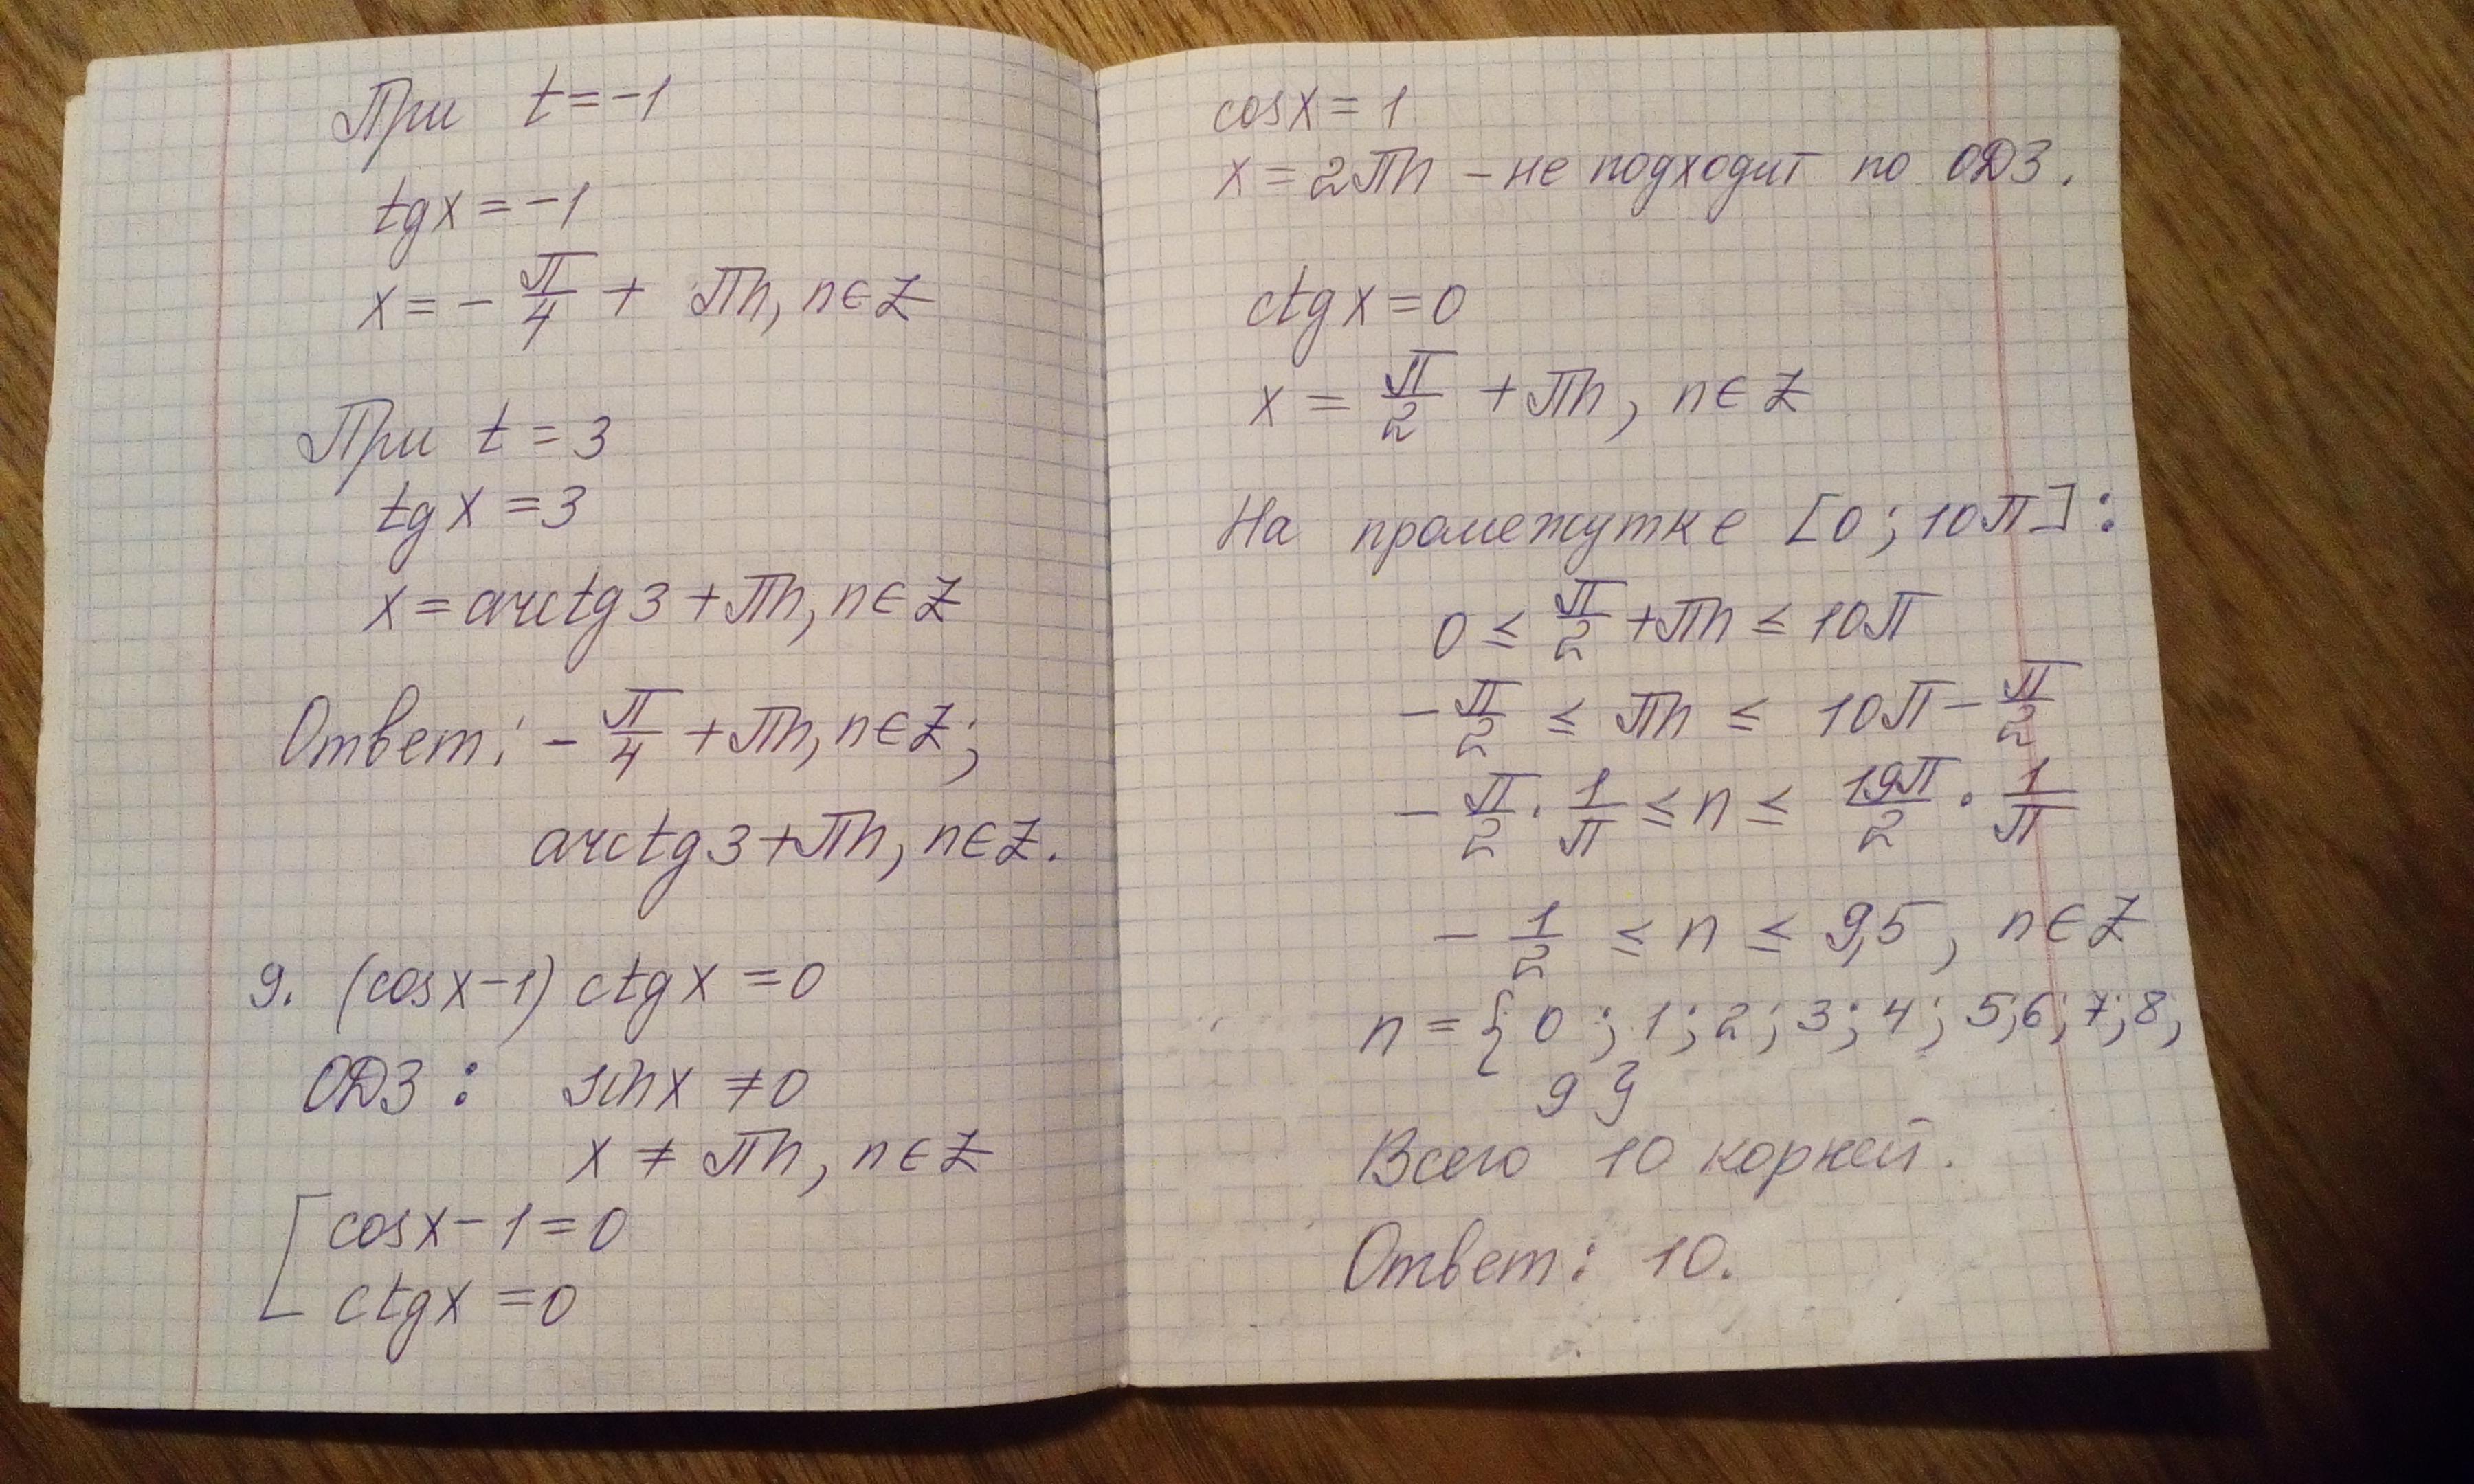 При t = -1
tgx = -1
x = - π/4 + πn, n∈Z
При t = 3
tgx = 3
x = arctg3 + πn, n∈Z
Ответ: - π/4 + πn, n∈Z;
arctg3 + πn, n∈Z.
9. (cosx - 1) ctgx = 0
ОДЗ: sinx ≠ 0
x ≠ πn, n∈Z
[ cosx - 1 = 0
ctgx = 0
cosx = 1
x = 2πn - не подходит по ОДЗ.
ctgx = 0
x = π/2 + πn, n∈Z
На промежутке [0; 10π]:
0 ≤ π/2 + πn ≤ 10π
- π/2 ≤ πn ≤ 10π - π/2
- π/2 · 1/π ≤ n ≤ 19π/2 · 1/π
- 1/2 ≤ n ≤ 9,5, n∈Z
n = {0; 1; 2; 3; 4; 5; 6; 7; 8;
9}
Всего 10 корней.
Ответ: 10.